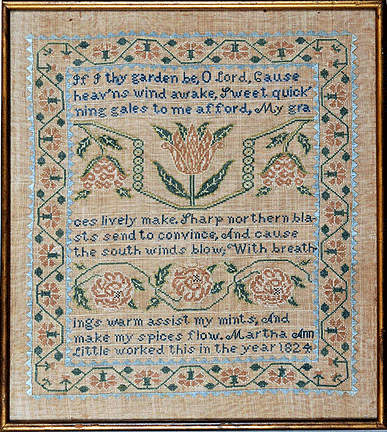 If I thy garden be, O Lord, Cause
heav'ns wind awake, Sweet quick'
ning gales to me afford, My gra
ces lively make. Sharp northern bla-
sts send to convince, And cause
the south winds blow, With breath-
ings warm assist my mints, And
make my spices flow. Martha Ann
Little worked this in the year 1824